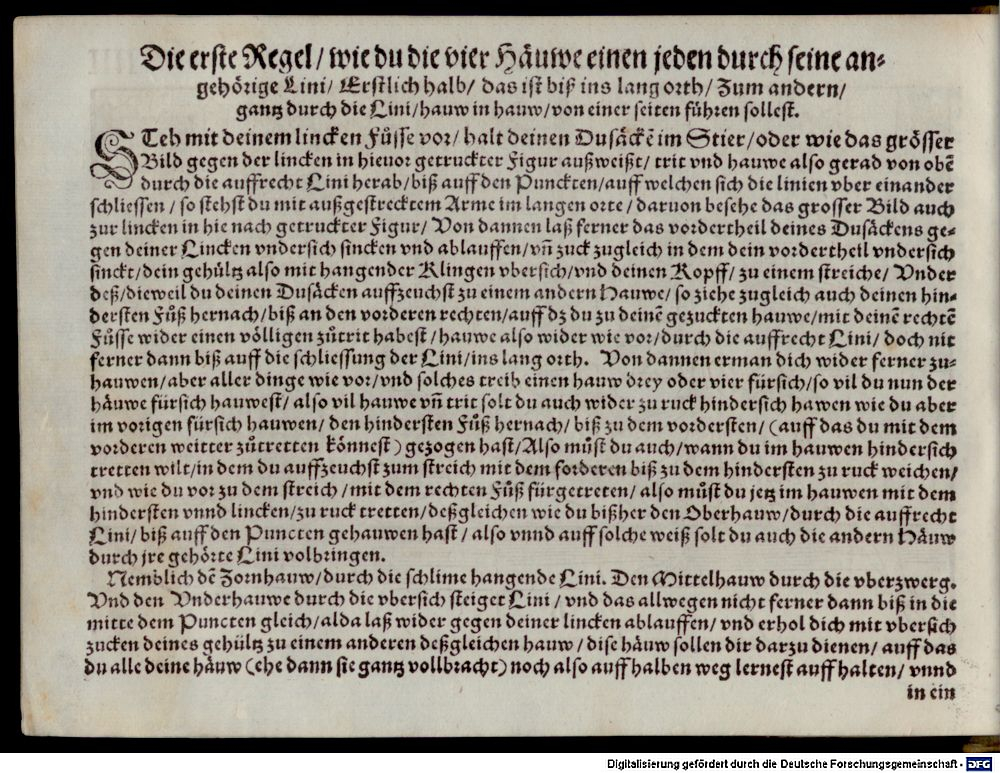 Die erste Regel/ wie du die vier Häuwe einen jeden durch seine an-
gehörige Lini/ Erstlich halb/ das ist biß ins lang orth/ Zum andern/
gantz durch die Lini/ hauw in hauw/ von einer seiten führen sollest.
STeh mit deinem lincken Fůsse vor/ halt deinen Dusäckẽ im Stier/ oder wie das grösser
Bild gegen der lincken in hievor getruckter Figur außweißt/ trit vnd hauwe also gerad von obẽ
durch die auffrecht Lini herab/ biß auff den Punckten/ auff welchen sich die linien vber einander
schliessen/ so stehst du mit außgestrecktem Arme im langen orte/ daruon besehe das grosser Bild auch
zur lincken in hie nach getruckter Figur/ Von dannen laß ferner das vordertheil deines Dusäckens ge-
gen deiner Lincken vndersich sincken vnd ablauffen/ vñ zuck zugleich in dem dein vordertheil vndersich
sinckt/ dein gehültz also mit hangender Klingen vbersich/ vnd deinen Kopff/ zu einem streiche/ Vnder
deß/ dieweil du deinen Dusäcken auffzeuchst zu einem andern Hauwe/ so ziehe zugleich auch deinen hin-
dersten Fůß hernach/ biß an den vorderen rechten/ auff dz du zu deinẽ gezuckten hauwe/ mit deinẽ rechtẽ
Fůsse wider einen völligen zůtrit habest/ hauwe also wider wie vor/ durch die auffrecht Lini/ doch nit
ferner dann biß auff die schliessung der Lini/ ins lang orth. Von dannen erman dich wider ferner zu-
hauwen/ aber aller dinge wie vor/ vnd solches treib einen hauw drey oder vier fürsich/ so vil du nun der
häuwe fürsich hauwest/ also vil hauwe vñ trit solt du auch wider zu ruck hindersich hawen wie du aber
im vorigen fürsich hauwen/ den hindersten Fůß hernach/ biß zu dem vordersten/ (auff das du mit dem
vorderen weitter zůtretten könnest) gezogen hast/ Also můst du auch/ wann du im hauwen hindersich
tretten wilt/ in dem du auffzeuchst zum streich mit dem forderen biß zu dem hindersten zu ruck weichen/
vnd wie du vor zu dem streich/ mit dem rechten Fůß fürgetreten/ also můst du jetz im hauwen mit dem
hindersten vnnd lincken/ zu ruck tretten/ deßgleichen wie du bißher den Oberhauw/ durch die auffrecht
Lini/ biß auff den Puncten gehauwen hast/ also vnnd auff solche weiß solt du auch die andern Häuw
durch jre gehörte Lini volbringen.
Nemblich dẽ Zornhauw/ durch die schlime hangende Lini. Den Mittelhauw durch die vberzwerg.
Vnd den Vnderhauwe durch die vbersich steiget Lini/ vnd das allwegen nicht ferner dann biß in die
mitte dem Puncten gleich/ alda laß wider gegen deiner lincken ablauffen/ vnd erhol dich mit vbersich
zucken deines gehültz zu einem anderen deßgleichen hauw/ dise häuw sollen dir darzu dienen/ auff das
du alle deine häuw (ehe dann sie gantz vollbracht) noch also auff halben weg lernest auff halten/ vnnd
in ein
Digitalisierung gefördert durch die Deutsche Forschungsgemeinschaft - DFG